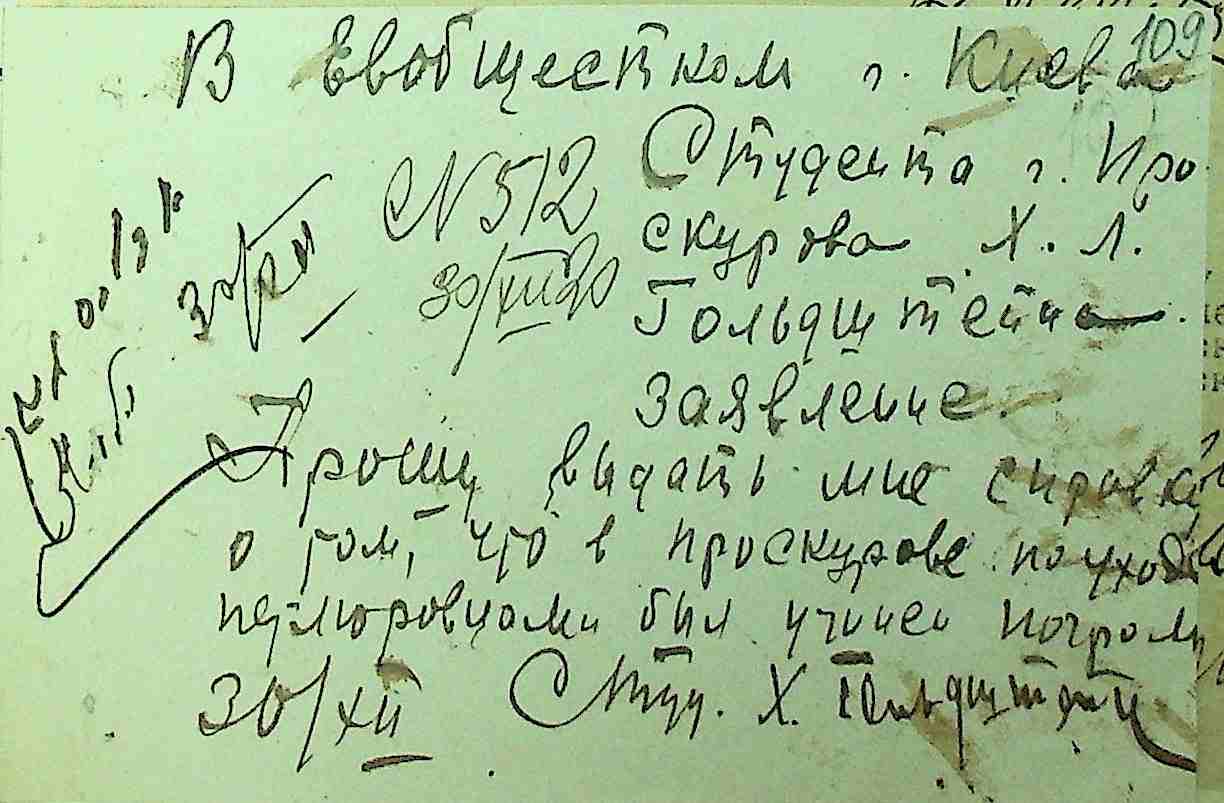 109
В Евобщестком г. Киева
Студента г. Про
скурова Х. Л.
Гольдштейна.
N 512
30/XII 20
заявление.
Прошу выдать мне справку
о том, что в Проскурове по уходе
петлюровцами был учинен погром
30/XII Студ. Х. Гольдштейн